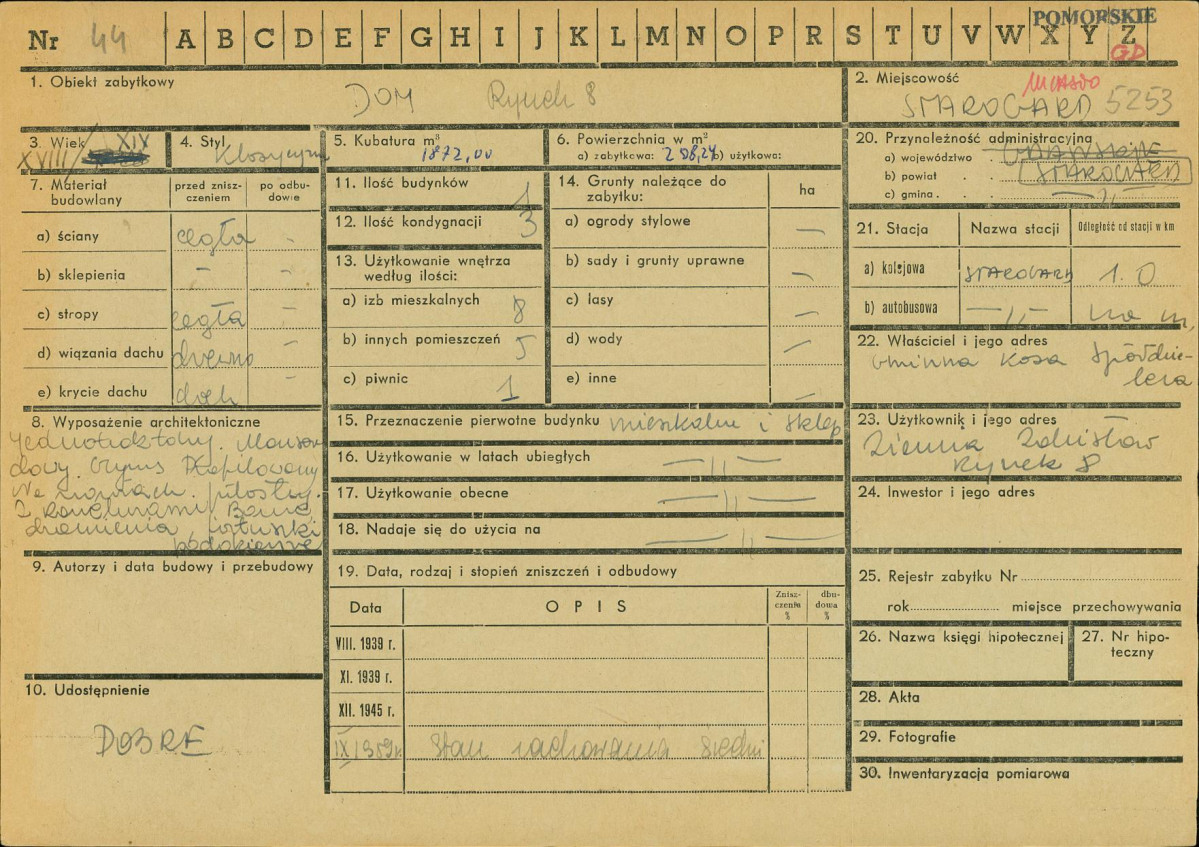 POMORSKIE
Nr 44 A B C D E F G H I J K L M N O P R S T U V W X Y Z
GD
1. Obiekt zabytkowy
DOM Rynek 8
2. Miejscowość
miasto
STAROGARD 5253
3. Wiek XIX
XVIII/
4. Styl
Klasycyzm
5. Kubatura m³
1872,00
6. Powierzchnia w m²
a) zabytkowa: 208,24 b) użytkowa:
20. Przynależność administracyjna
a) województwo
b) powiat STAROGARD
c) gmina —„—
7. Materiał budowlany
przed zniszczeniem
po odbudowie
a) ściany cegła -
b) sklepienia - -
c) stropy cegła -
d) wiązania dachu drewno -
e) krycie dachu dach -
11. Ilość budynków 1
12. Ilość kondygnacji 3
13. Użytkowanie wnętrza
według ilości:
a) izb mieszkalnych 8
b) innych pomieszczeń 5
c) piwnic 1
14. Grunty należące do
zabytku:
ha
a) ogrody stylowe —
b) sady i grunty uprawne —
c) lasy —
d) wody —
e) inne —
21. Stacja
Nazwa stacji
Odległość od stacji w km
a) kolejowa STAROGARD 1.0
b) autobusowa —„— na m.
22. Właściciel i jego adres
Gminna Kasa Spółdziel-
cza
8. Wyposażenie architektoniczne
Mansar-
dowy. Gzyms Profilowany
Na
Z Kanelurami
podokienne
15. Przeznaczenie pierwotne budynku mieszkalne i sklep
16. Użytkowanie w latach ubiegłych —„—
17. Użytkowanie obecne —„—
18. Nadaje się do użycia na —„—
23. Użytkownik i jego adres
Zdzisław
Rynek 8
24. Inwestor i jego adres
9. Autorzy i data budowy i przebudowy
19. Data, rodzaj i stopień zniszczeń i odbudowy
Data
OPIS
Znisz-
czenia
%
dbu-
dowa
%
VIII. 1939 r.
XI. 1939 r.
XII. 1945 r.
IX 1959 r. Stan zachowania średni
25. Rejestr zabytku Nr
rok miejsce przechowywania
26. Nazwa księgi hipotecznej
27. Nr hipo-
teczny
10. Udostępnienie
DOBRE
28. Akta
29. Fotografie
30. Inwentaryzacja pomiarowa